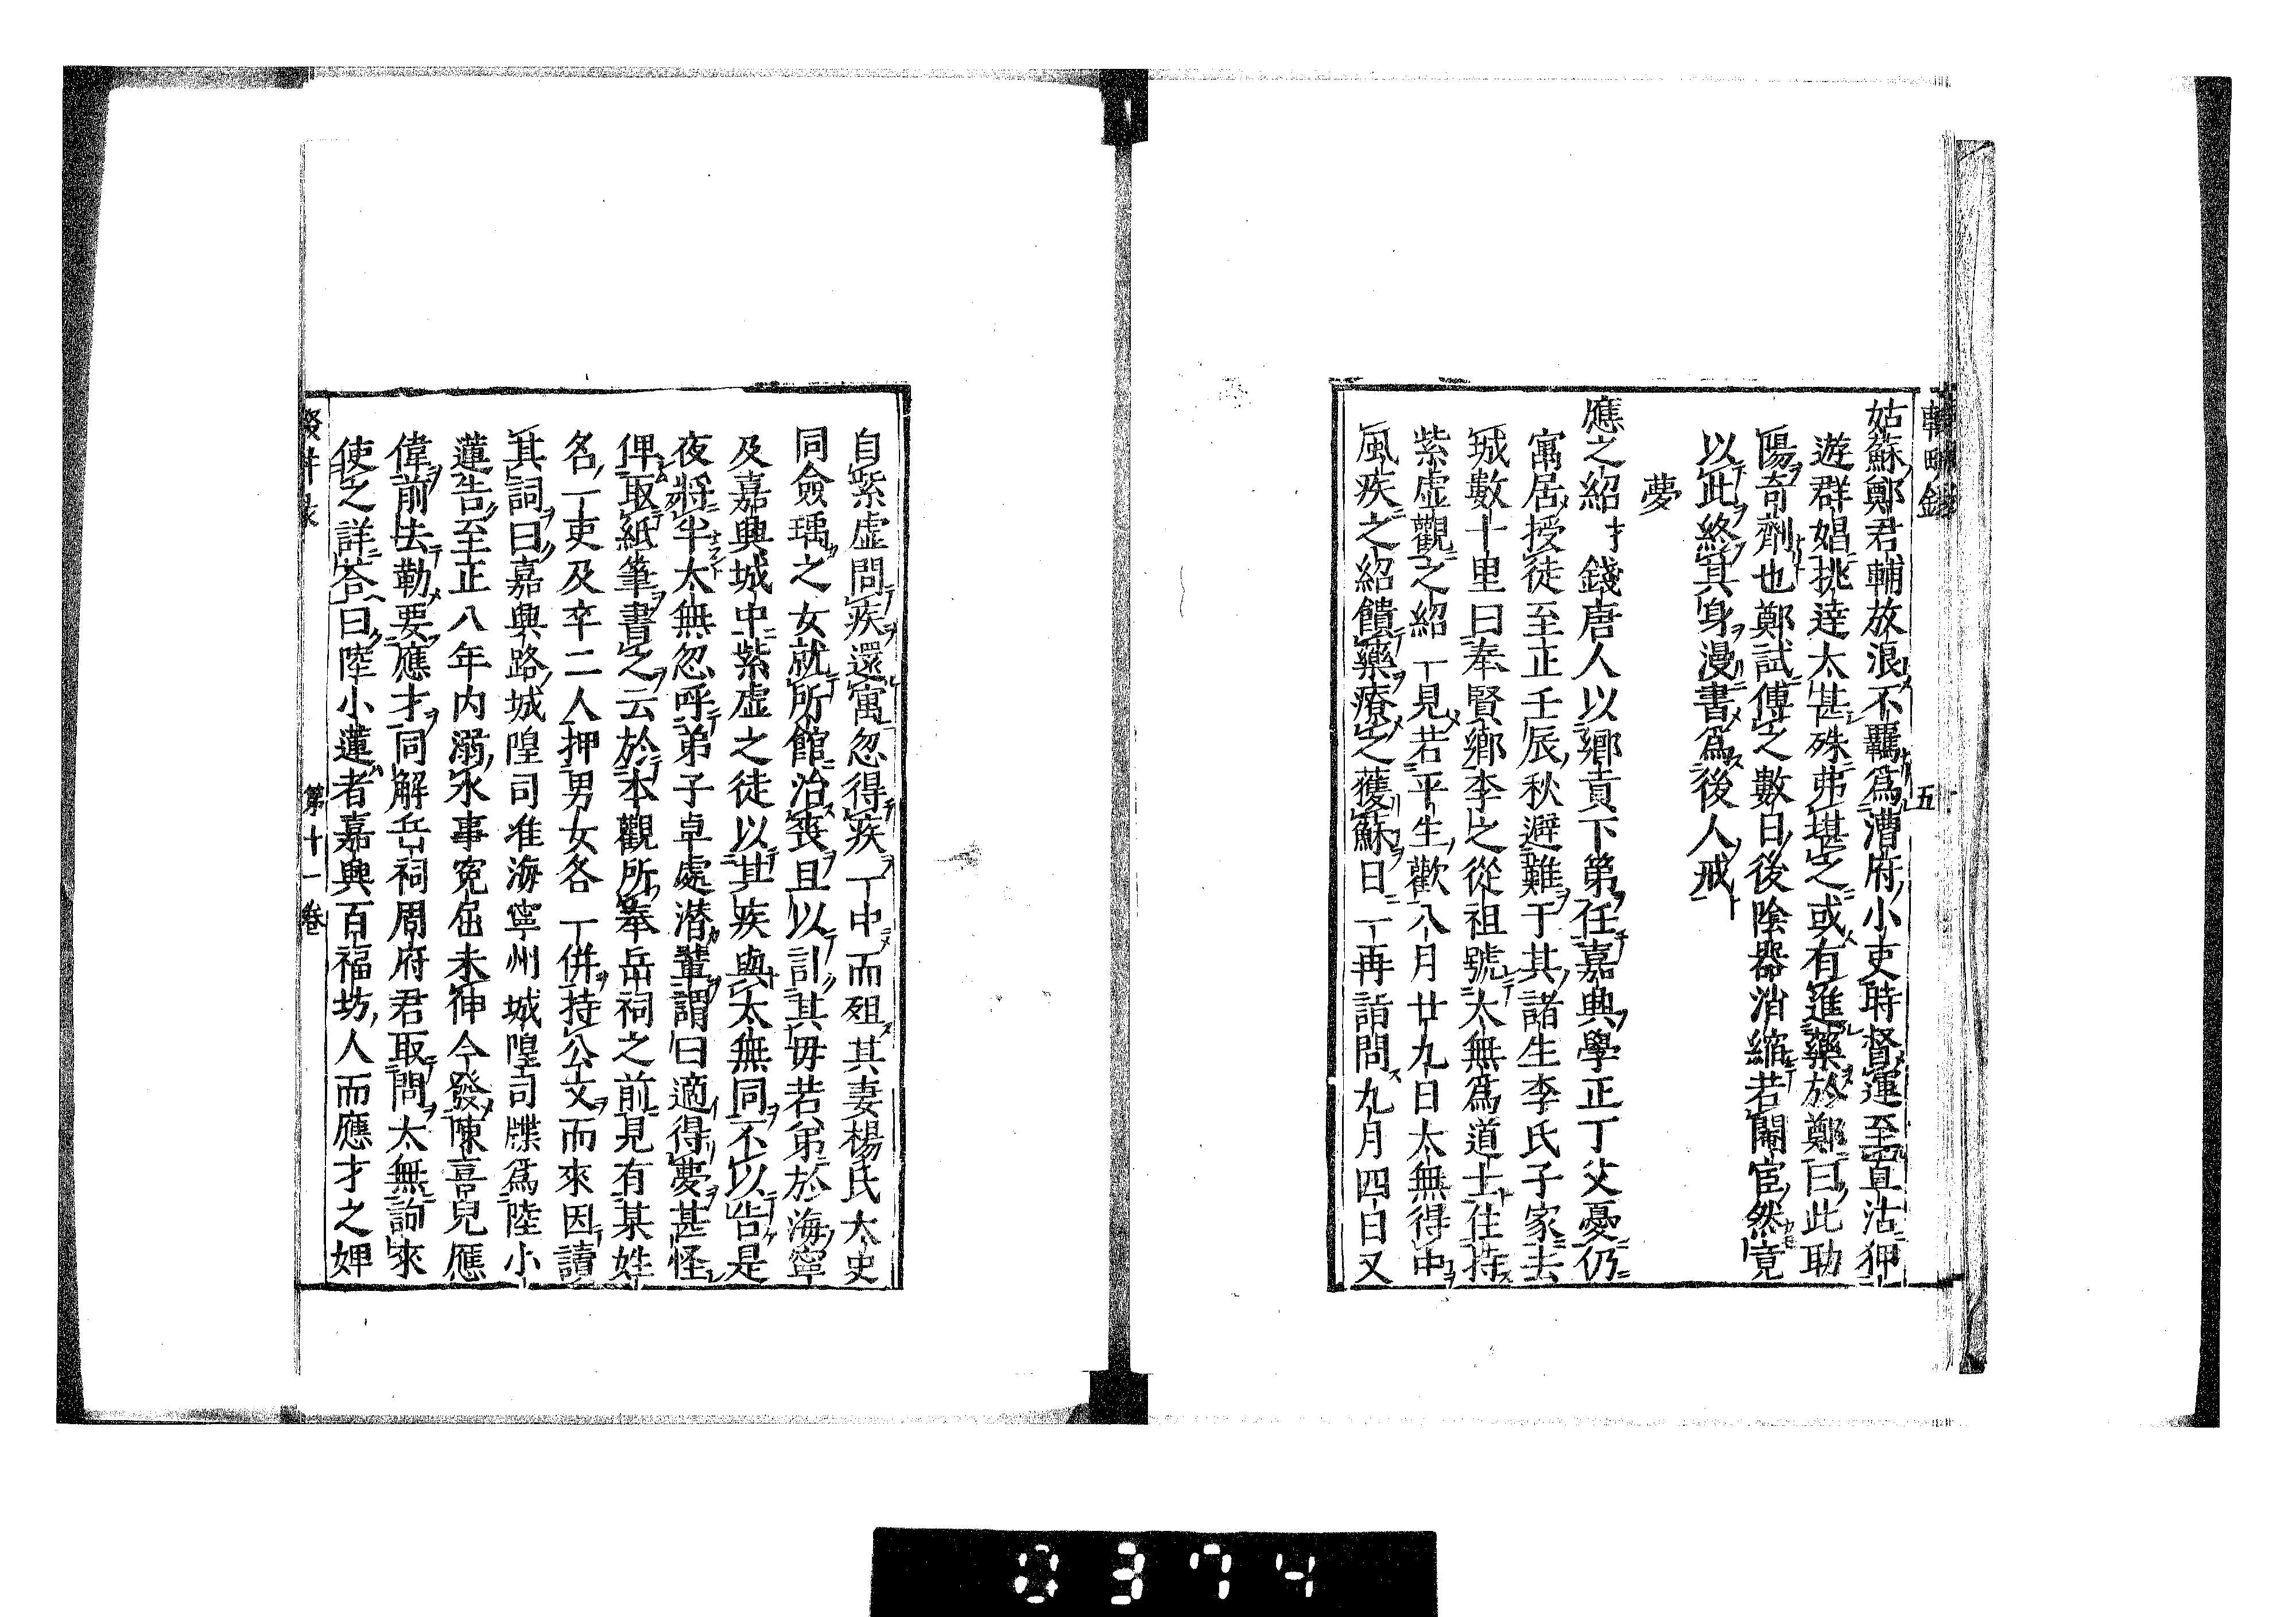 輟畊録 五
姑蘇鄭君輔放浪不羈爲漕府小吏時督運至直沽狎
遊群娼挑達太甚殊弗堪之或有進藥於鄭曰此助
陽奇劑也鄭試傅之數日後陰器消縮若閹宦然竟
以此終其身漫書爲後人戒
夢
應之紹才錢唐人以鄉貢下第任嘉興學正丁父憂仍
寓居授徒至正壬辰秋避難于其諸生李氏子家去
城數十里曰奉賢鄉李之從祖號太無爲道士住持
紫虛觀之紹一見若平生歡八月廿九日太無得中
風疾之紹饋藥療之獲蘇日一再詣問九月四日又
自紫虛問疾還寓忽得疾一中而殂其妻楊氏太史
同僉瑀之女就所館治喪且以訃其母若弟於海寧
及嘉興城中紫虛之徒以其疾與太無同不以告是
夜將半太無忽呼弟子卓處潜輩謂曰適得夢甚怪
俾取紙筆書之云於本觀所奉岳祠之前見有某姓
名一吏及卒二人押男女各一併持公文而來因讀
其詞曰嘉興路城隍司准海寧州城隍司牒爲陸小
蓮告至正八年内溺水事寃屈未伸今發陳喜兒應
偉前去勒要應才同解岳祠周府君取問太無詢來
使之詳荅曰陸小蓮者嘉興百福坊人而應才之婢
輟畊录 第十一卷
0374